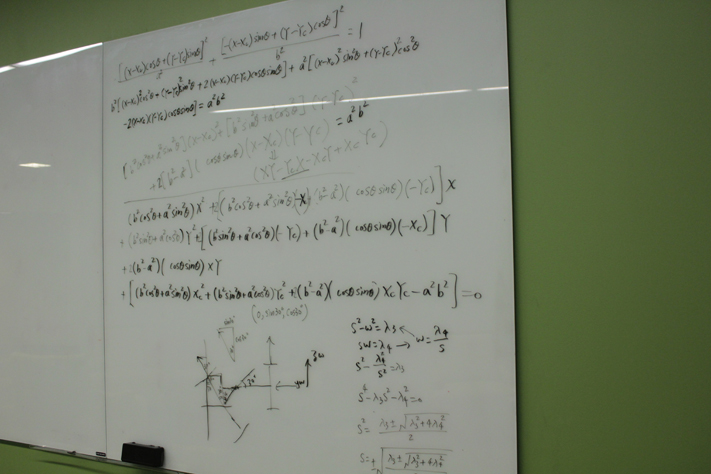 [(x-x_c)cosθ+(Y-Y_c)sinθ]²/a² + [-(x-x_c)sinθ+(Y-Y_c)cosθ]²/b² = 1
b²[(x-x_c)²cos²θ+(Y-Y_c)²sin²θ+2(x-x_c)(Y-Y_c)cosθsinθ]+a²[(x-x_c)²sin²θ+(Y-Y_c)²cos²θ
-2(x-x_c)(Y-Y_c)cosθsinθ] = a²b²
= a²b²
+2[b²-a²](cosθsinθ)(x-X_c)(Y-Y_c)
(XY-Y_cX-X_cY+X_cY_c)
(b²cos²θ+a²sin²θ)X²+2[(b²cos²θ+a²sin²θ)(-X_c)(b²-a²)(cosθsinθ)(-Y_c)]X
+(b²sin²θ+a²cos²θ)Y²+2[(b²sin²θ+a²cos²θ)(-Y_c)+(b²-a²)(cosθsinθ)(-X_c)]Y
+2(b²-a²)(cosθsinθ)XY
+[(b²cos²θ+a²sin²θ)X_c²+(b²sin²θ+a²cos²θ)Y_c²+2(b²-a²)(cosθsinθ)X_cY_c-a²b²]=0
(0, sin30°, cos30°)
sin30°
cos30°
30°
zw
yw
s²-w²=λ3
sw=λ4 → w=λ4/s
s²-λ4²/s²=λ3
s⁴-λ3s²-λ4²=0
s²=(λ3±√(λ3²+4λ4²))/2
s=±√(λ3±√(λ3²+4λ4²)